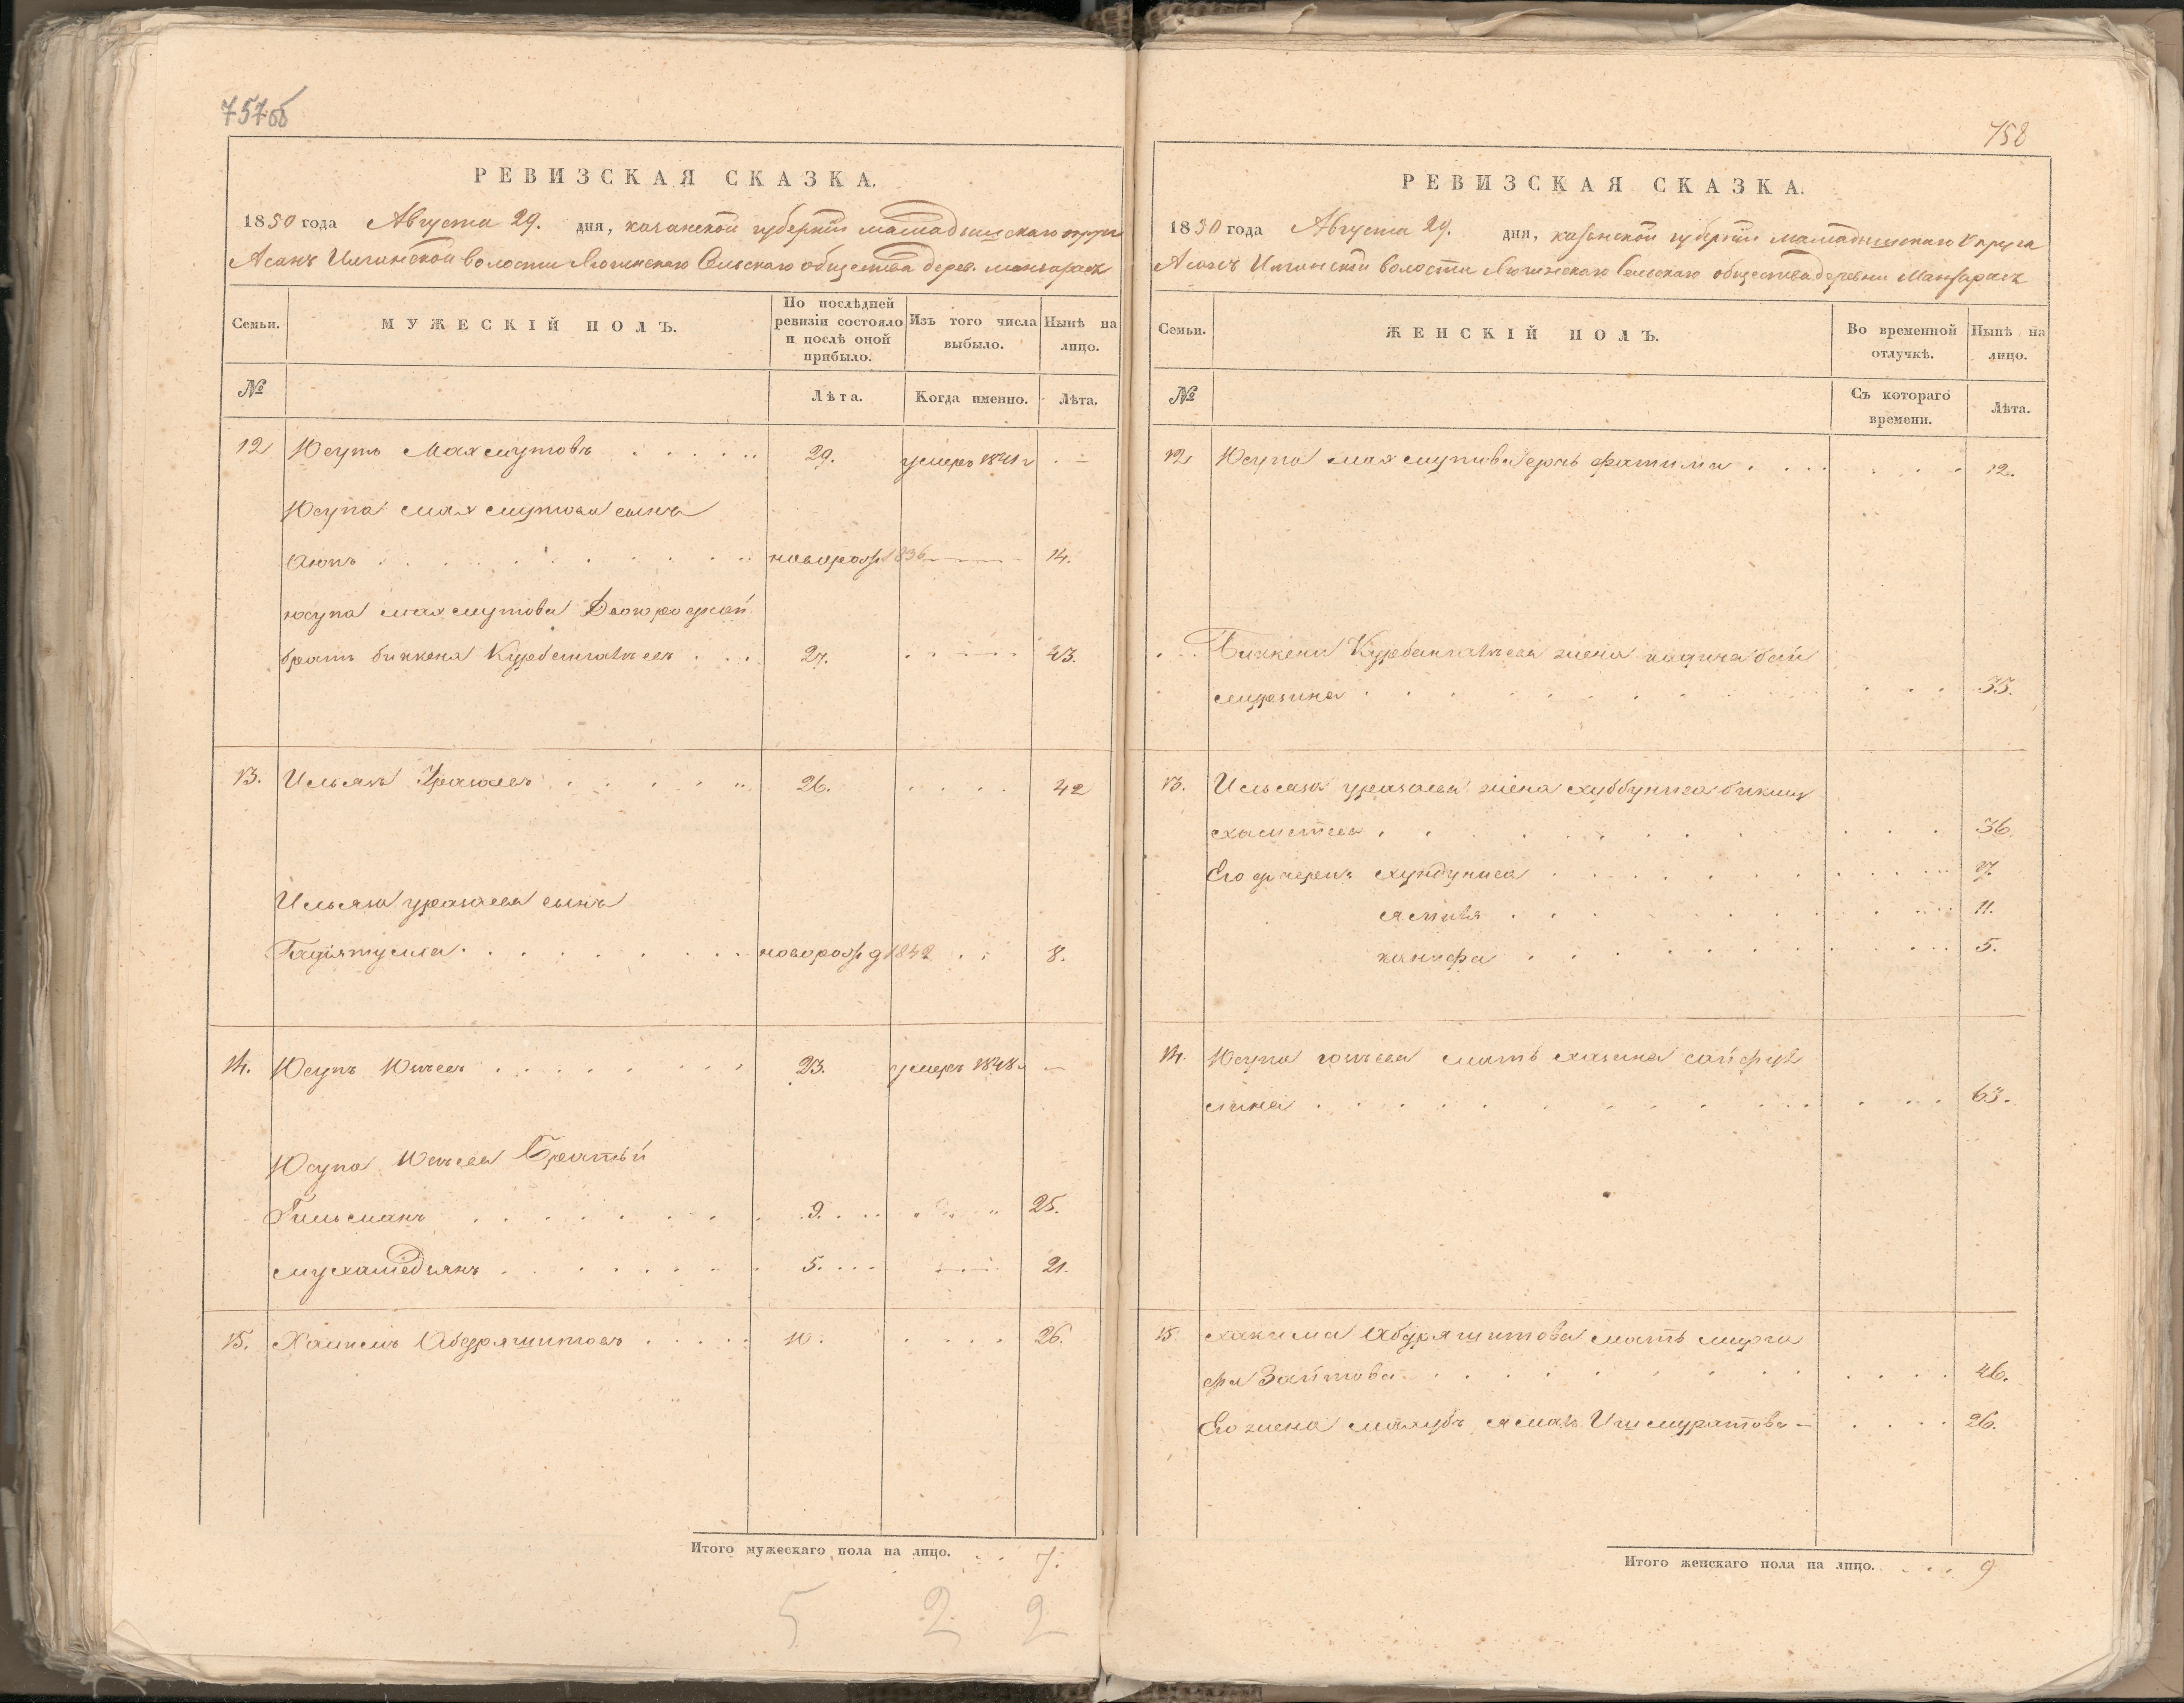 757об
РЕВИЗСКАЯ СКАЗКА.
1850 года Августа 29. дня, казанской губернiи мамадышскаго округа
Асанъ Илганской волости Яюгинскаго Сельскаго общества дерев. мансараск
Семьи.
МУЖЕСКIЙ ПОЛЪ.
По послѣдней ревизiи состояло и послѣ оной прибыло.
Изъ того числа выбыло.
Нынѣ на лицо.
№
Лѣта.
Когда именно.
Лѣта.
12 Юсупъ Махмутовъ 29. умеръ 1841 г —
Юсупа махмутова сынъ
Аюпъ новорож 1836 14.
юсупа махмутова Двоюродной
братъ биккеня Курбангалѣевъ 27. 43.
13. Ильясъ Уразаевъ 26. 42
Ильяса уразаева сынъ
Гадiятулла новорожд 1842 8.
14. Юсупъ Юлѣевъ 23. умеръ 1848 г —
Юсупа Юлѣева Братьи
Гильманъ 9. 25.
мухамедьянъ 5. 21.
15. Хакимъ Абдряшитовъ 10. 26.
Итого мужескаго пола на лицо. 7.
5 2 2
758
РЕВИЗСКАЯ СКАЗКА.
1850 года Августа 29. дня, казанской губернiи мамадышскаго округа
Асанъ Илганской волости Яюгинскаго Сельскаго общества деревни Мансараск
Семьи.
ЖЕНСКIЙ ПОЛЪ.
Во временной отлучкѣ.
Нынѣ на лицо.
№
Съ котораго времени.
Лѣта.
12 Юсупа махмутова дочь фатима 12.
Биккени Курбангалѣева жена хадича бай
мурзина 35.
13. Ильяса уразаева жена хуббуниса бикму
хаметева 36.
Его дочери: хундуниса 17.
ямиля 11.
ханифа 5.
14. Юсупа юлѣева мать хазина сайфул
лина 63.
15. хакима Абдряшитова мать мирга
фа Заитова 46.
Его жена махубъ ямалъ Ишмуратова — 26.
Итого женскаго пола на лицо. 9